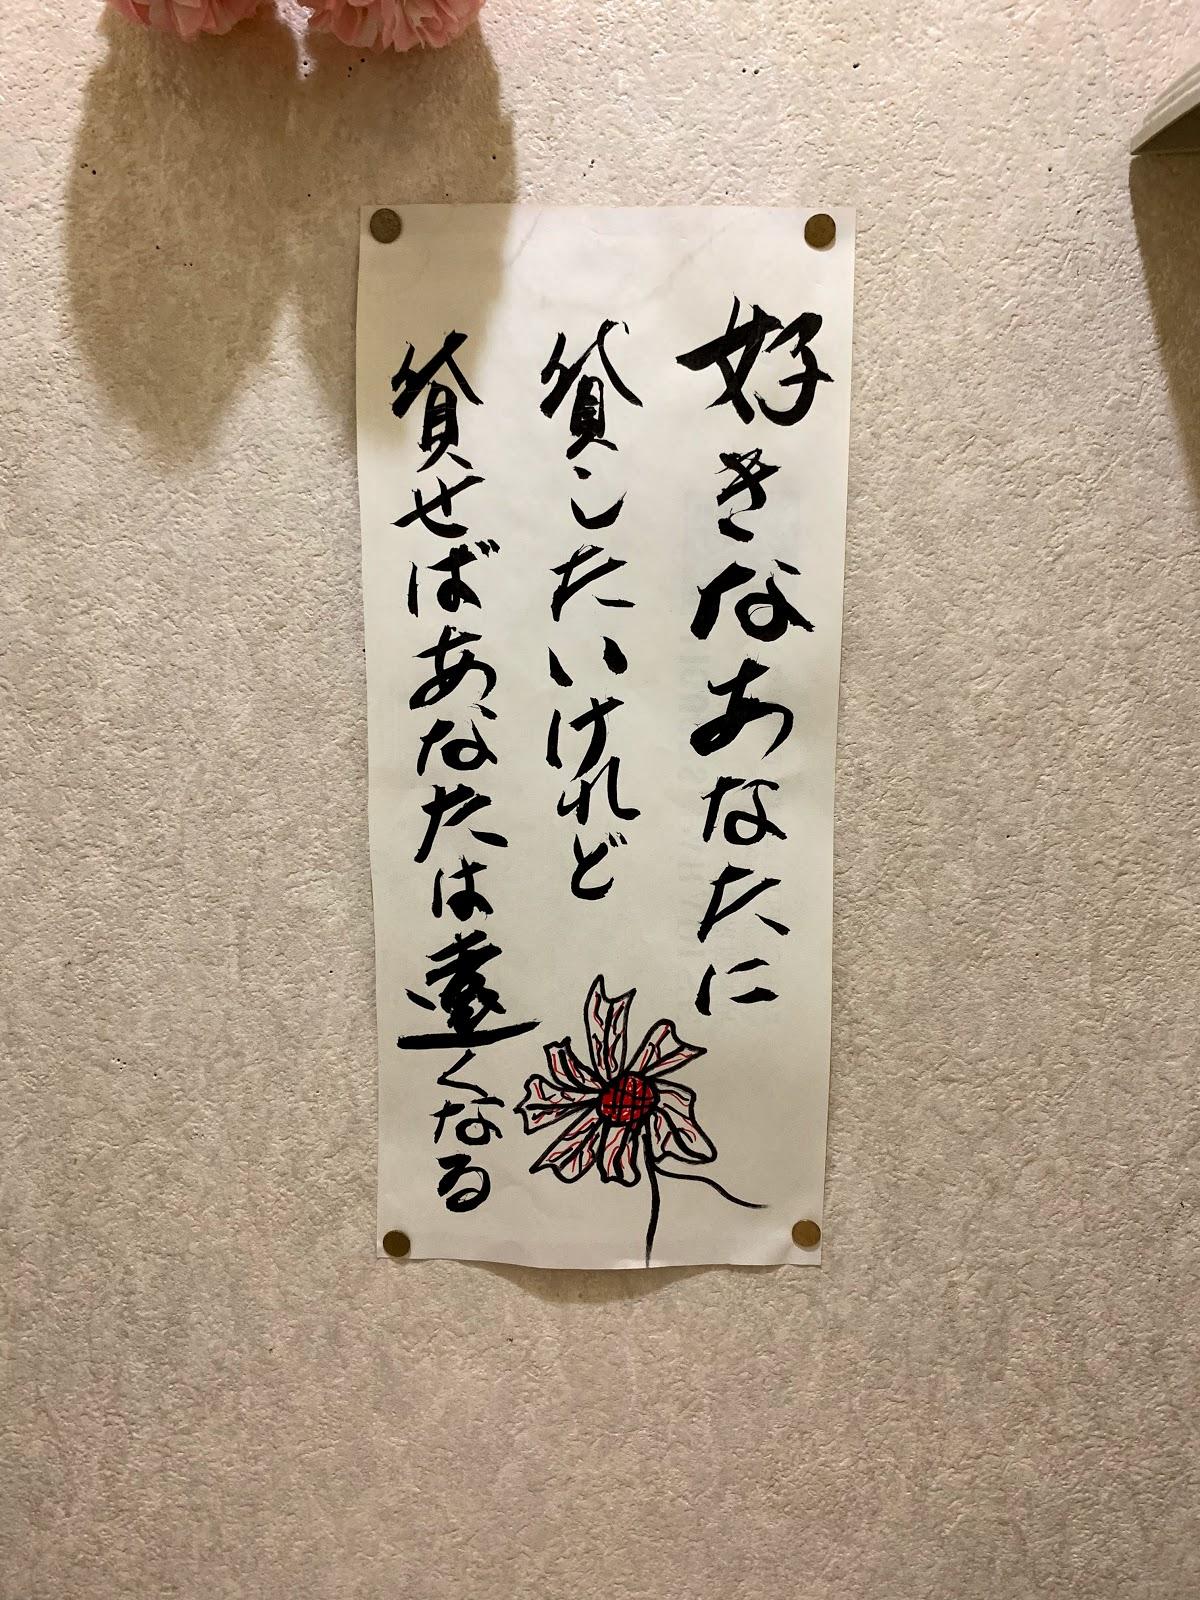 好きなあなたに
貸したいけれど
貸せばあなたは遠くなる